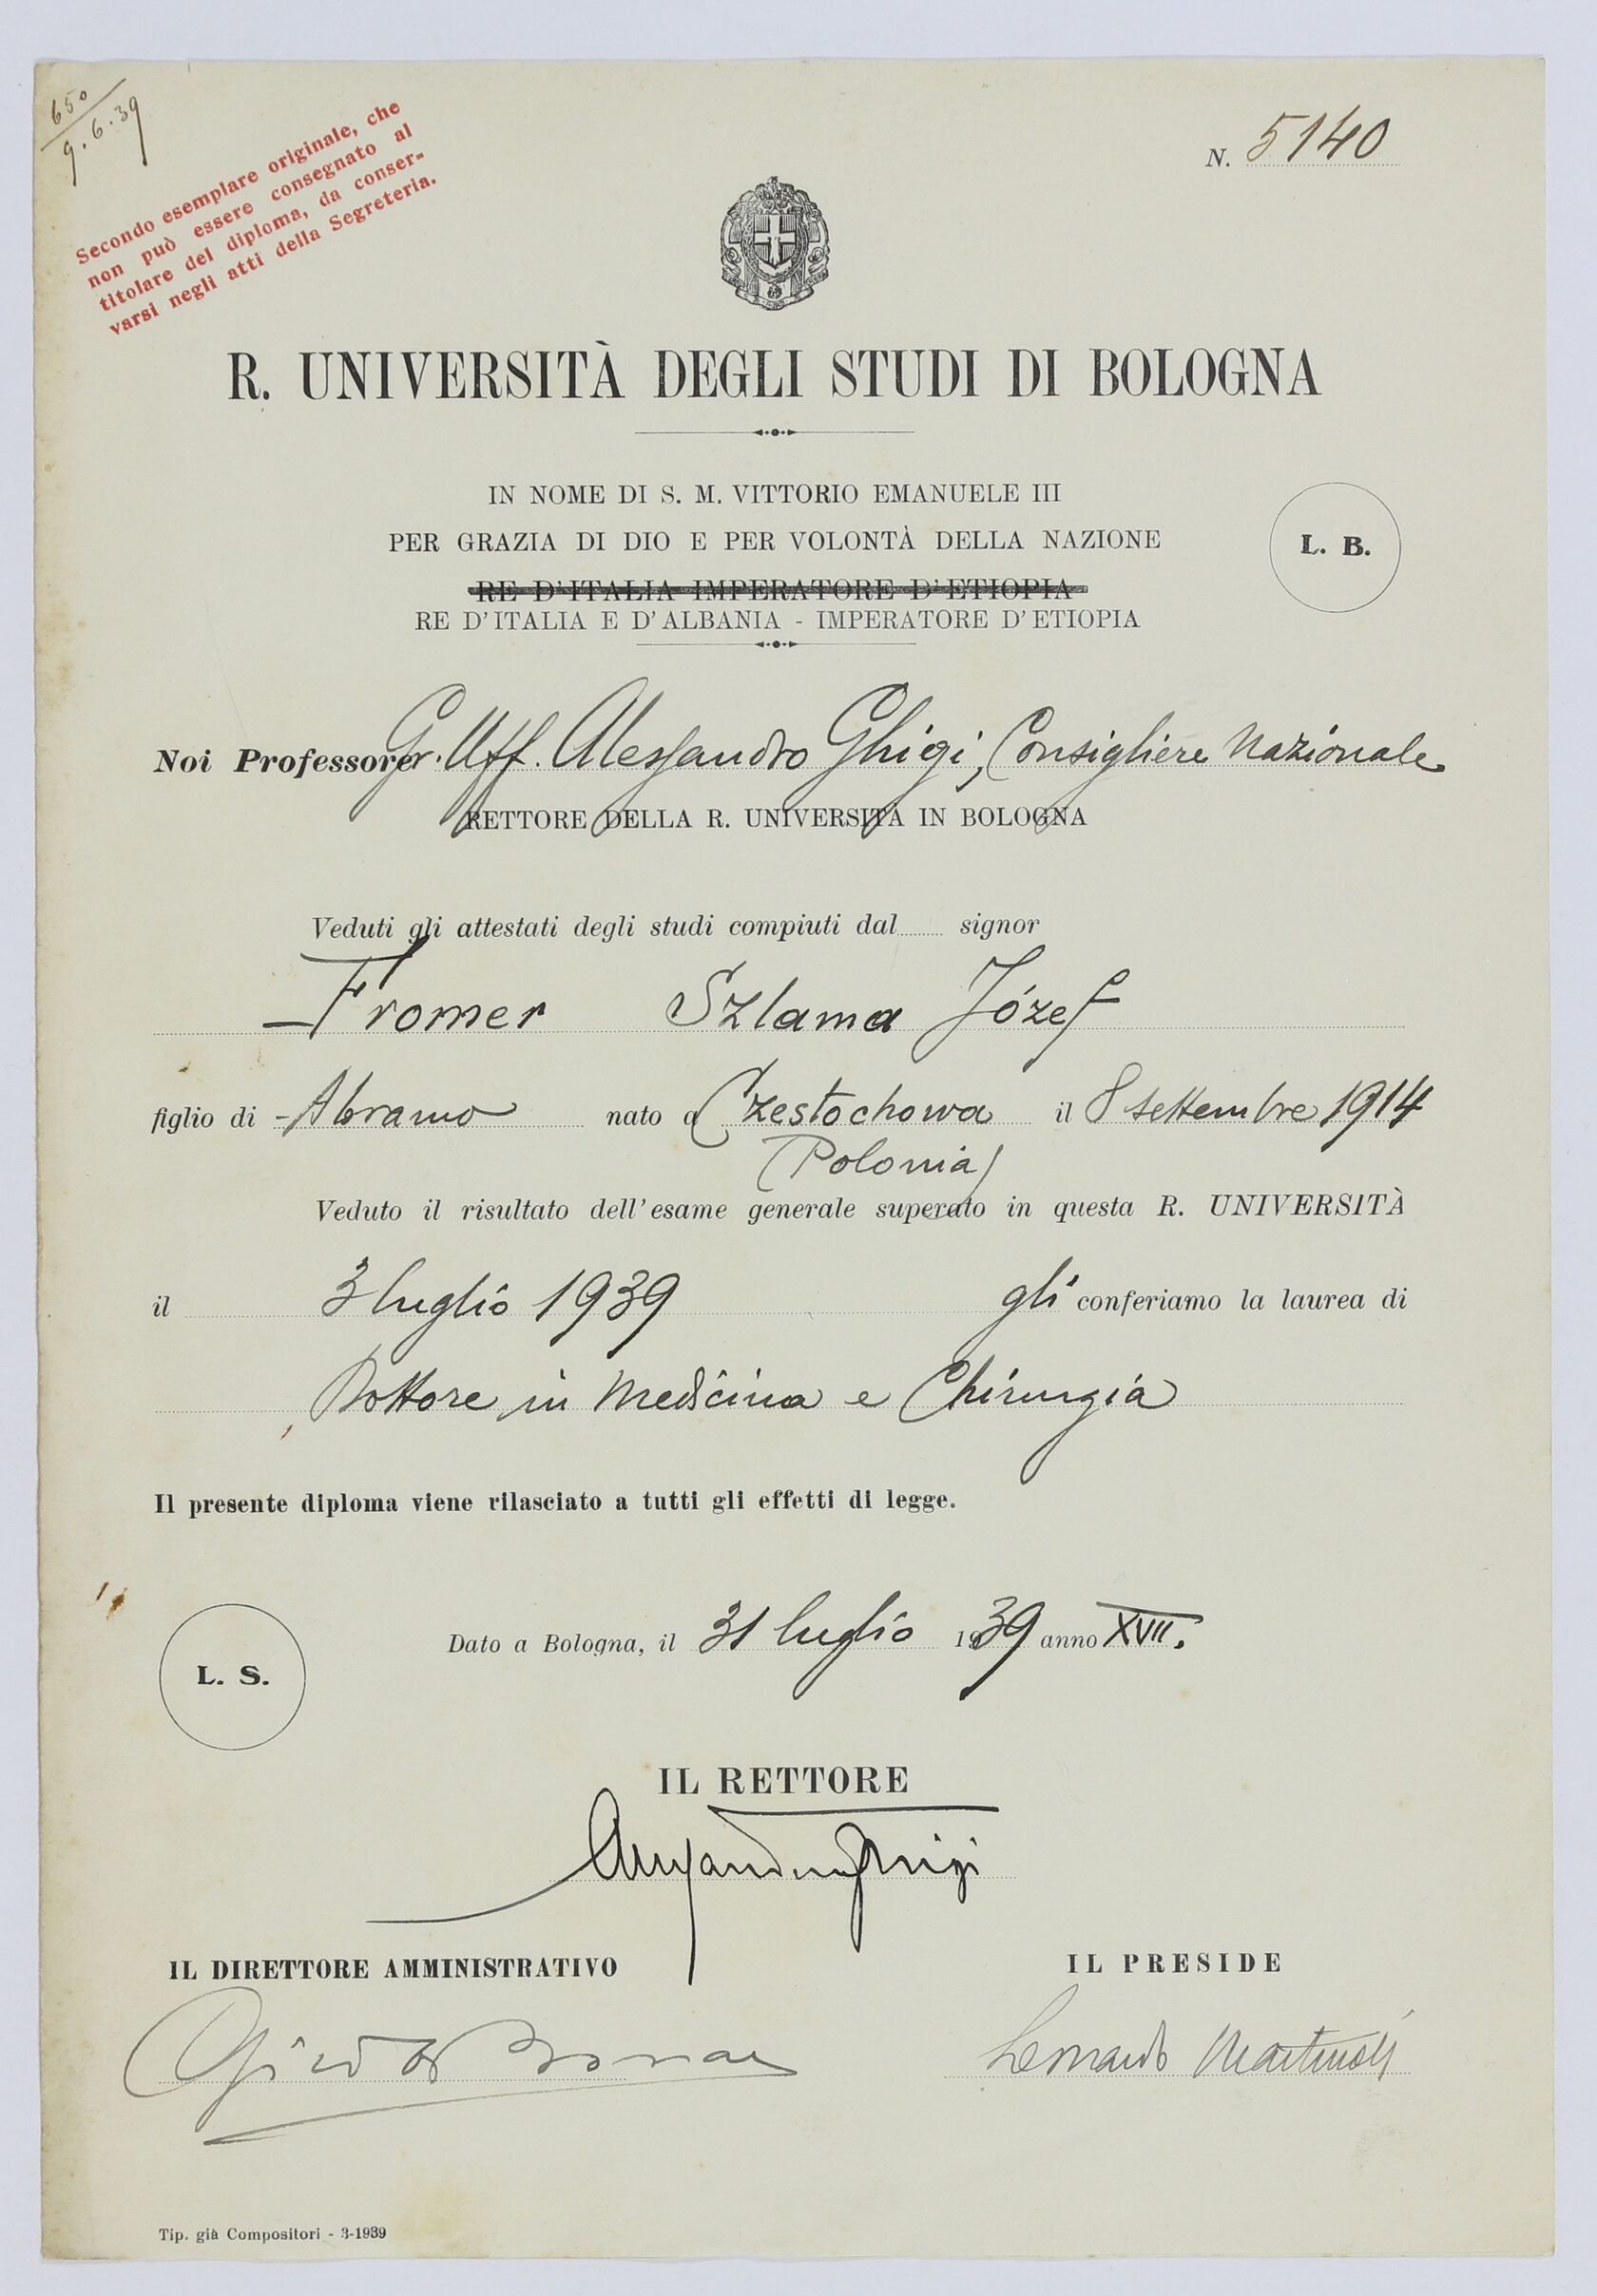 650
9.6.39
Secondo esemplare originale, che
non può essere consegnato al
titolare del diploma, da conser-
varsi negli atti della Segreteria.
N. 5140
R. UNIVERSITÀ DEGLI STUDI DI BOLOGNA
IN NOME DI S. M. VITTORIO EMANUELE III
PER GRAZIA DI DIO E PER VOLONTÀ DELLA NAZIONE
RE D'ITALIA IMPERATORE D'ETIOPIA
RE D'ITALIA E D'ALBANIA - IMPERATORE D'ETIOPIA
L. B.
Noi Professore Gr. Uff. Alessandro Ghigi, Consigliere Nazionale
RETTORE DELLA R. UNIVERSITÀ IN BOLOGNA
Veduti gli attestati degli studi compiuti dal signor
Fromer Szlama Józef
figlio di Abramo nato a Czestochowa il 8 settembre 1914
(Polonia)
Veduto il risultato dell'esame generale superato in questa R. UNIVERSITÀ
il 3 luglio 1939 gli conferiamo la laurea di
Dottore in Medicina e Chirurgia
Il presente diploma viene rilasciato a tutti gli effetti di legge.
L. S.
Dato a Bologna, il 31 luglio 1939 anno XVII.
IL RETTORE
Alessandro Ghigi
IL DIRETTORE AMMINISTRATIVO
IL PRESIDE
Tip. già Compositori - 3-1939